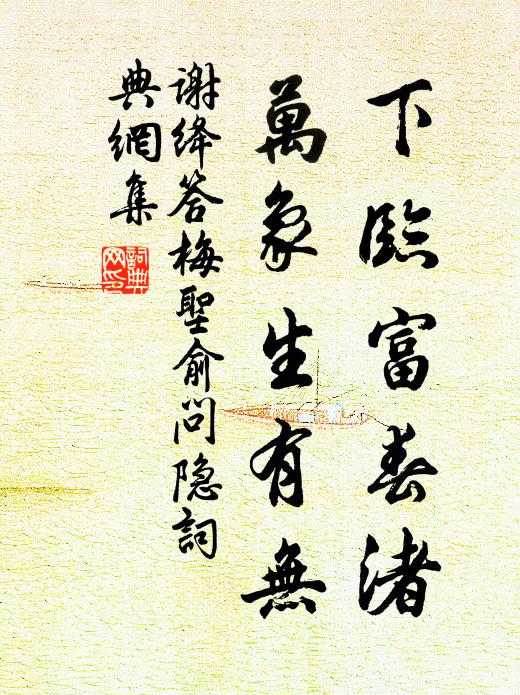 下臨富春渚
萬象生有無
謝絳答梅聖俞問隐詞
典網集
詞典网印